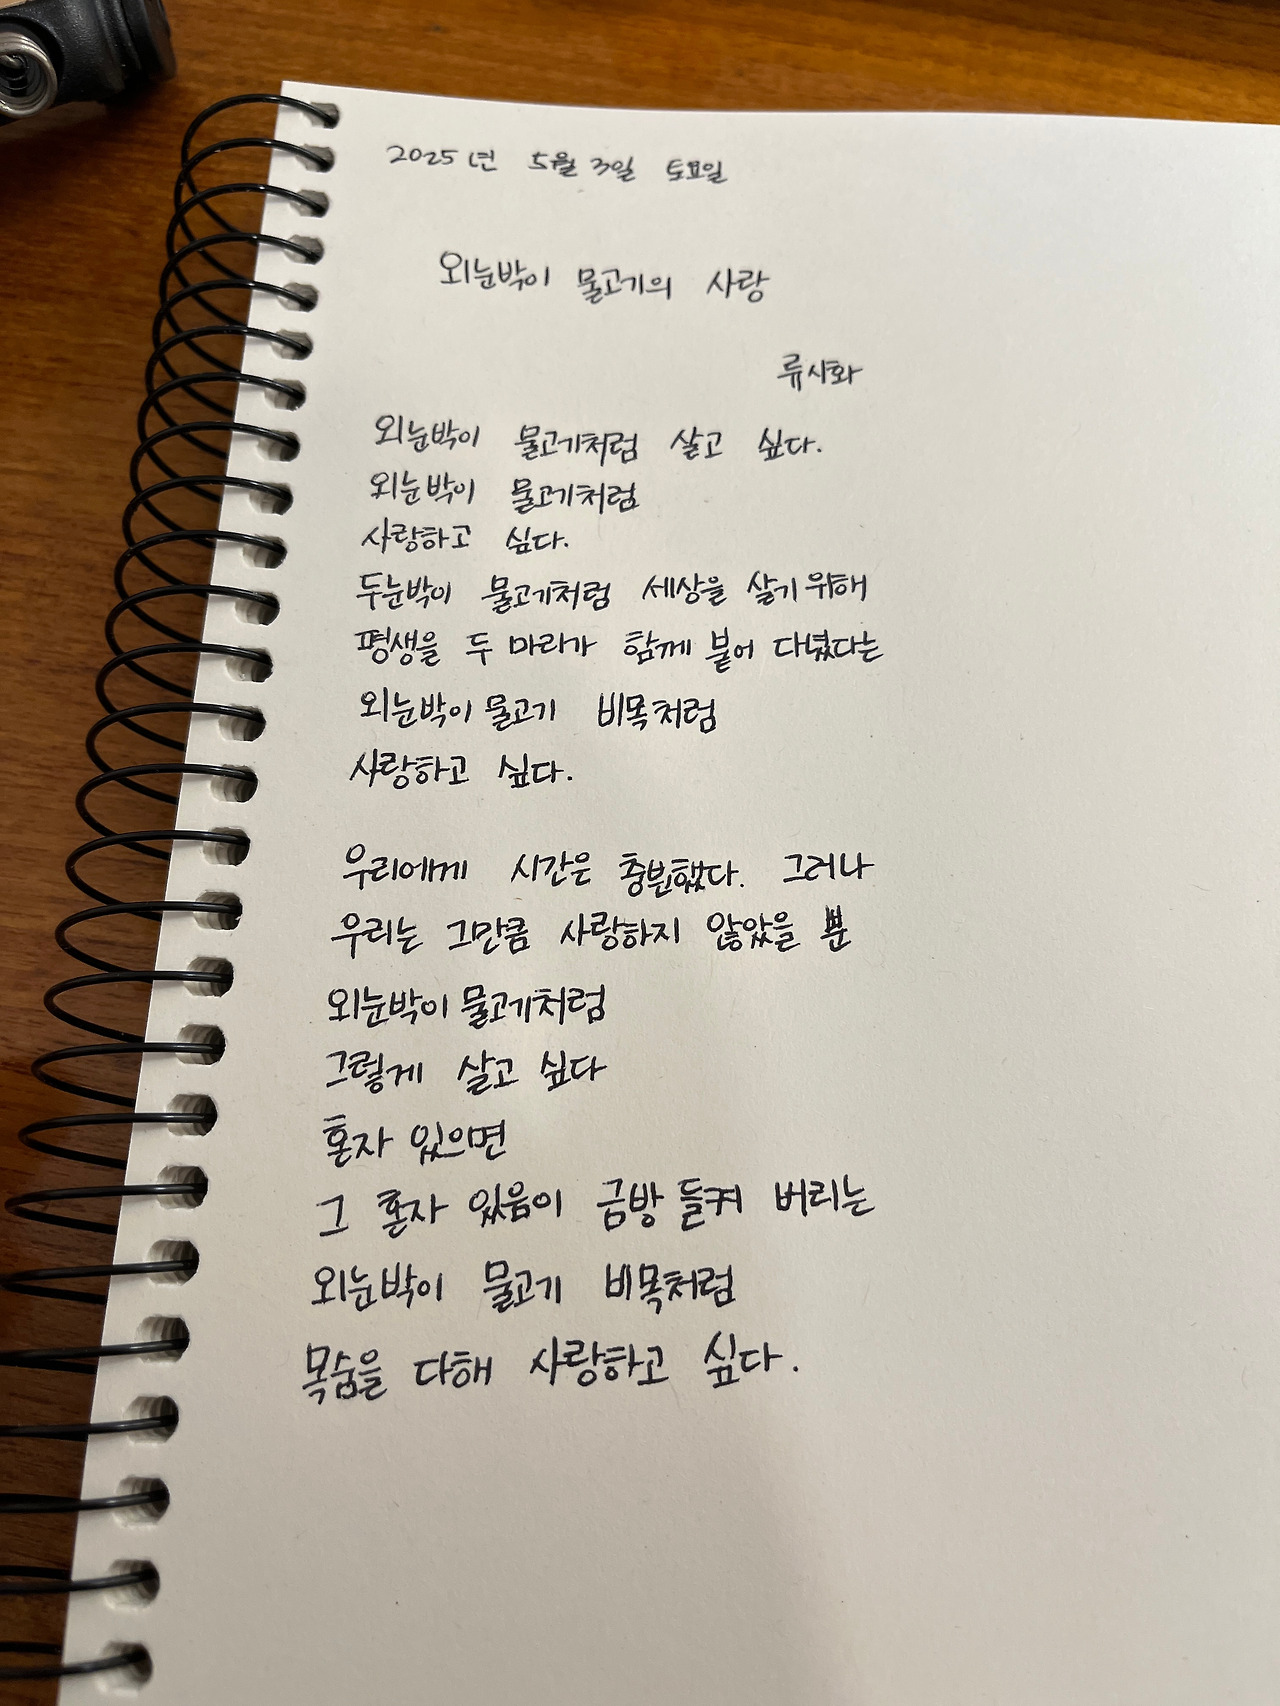 2025년 5월 3일 토요일
외눈박이 물고기의 사랑
류시화
외눈박이 물고기처럼 살고 싶다.
외눈박이 물고기처럼
사랑하고 싶다.
두눈박이 물고기처럼 세상을 살기 위해
평생을 두 마리가 함께 붙어 다녔다는
외눈박이 물고기 비목처럼
사랑하고 싶다.
우리에게 시간은 충분했다. 그러나
우리는 그만큼 사랑하지 않았을 뿐
외눈박이 물고기처럼
그렇게 살고 싶다
혼자 있으면
그 혼자 있음이 금방 들켜 버리는
외눈박이 물고기 비목처럼
목숨을 다해 사랑하고 싶다.